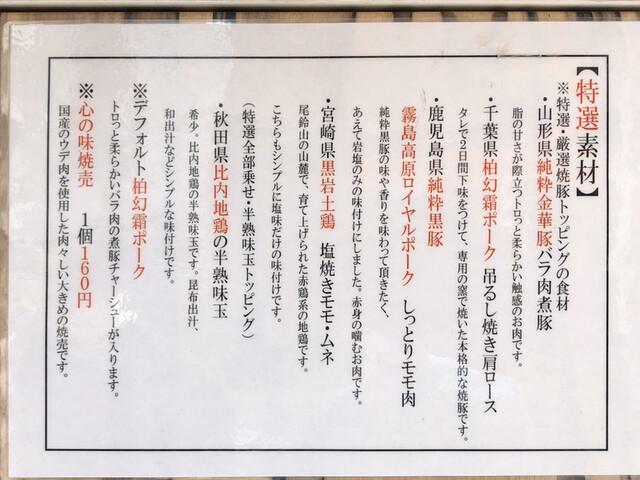 【特選素材】
※特選・厳選焼豚トッピングの食材
・山形県純粋金華豚バラ肉煮豚
脂の甘さが際立つトロっと柔らかい触感のお肉です。
・千葉県柏幻霜ポーク 吊るし焼き肩ロース
タレで2日間下味をつけて、専用の窯で焼いた本格的な焼豚です。
・鹿児島県純粋黒豚
霧島高原ロイヤルポーク しっとりモモ肉
純粋黒豚の味や香りを味わって頂きたく、
あえて岩塩のみの味付けにしました。赤身の噛むお肉です。
・宮崎県黒岩土鶏 塩焼きモモ・ムネ
尾鈴山の山麓で、育て上げられた赤鶏系の地鶏です。
こちらもシンプルに塩味だけの味付けです。
(特選全部乗せ・半熟味玉トッピング)
・秋田県比内地鶏の半熟味玉
希少。比内地鶏の半熟味玉です。昆布出汁、
和出汁などシンプルな味付けです。
※デフォルト柏幻霜ポーク
トロっと柔らかいバラ肉の煮豚チャーシューが入ります。
※心の味焼売 1個160円
国産のウデ肉を使用した肉々しい大きめの焼売です。